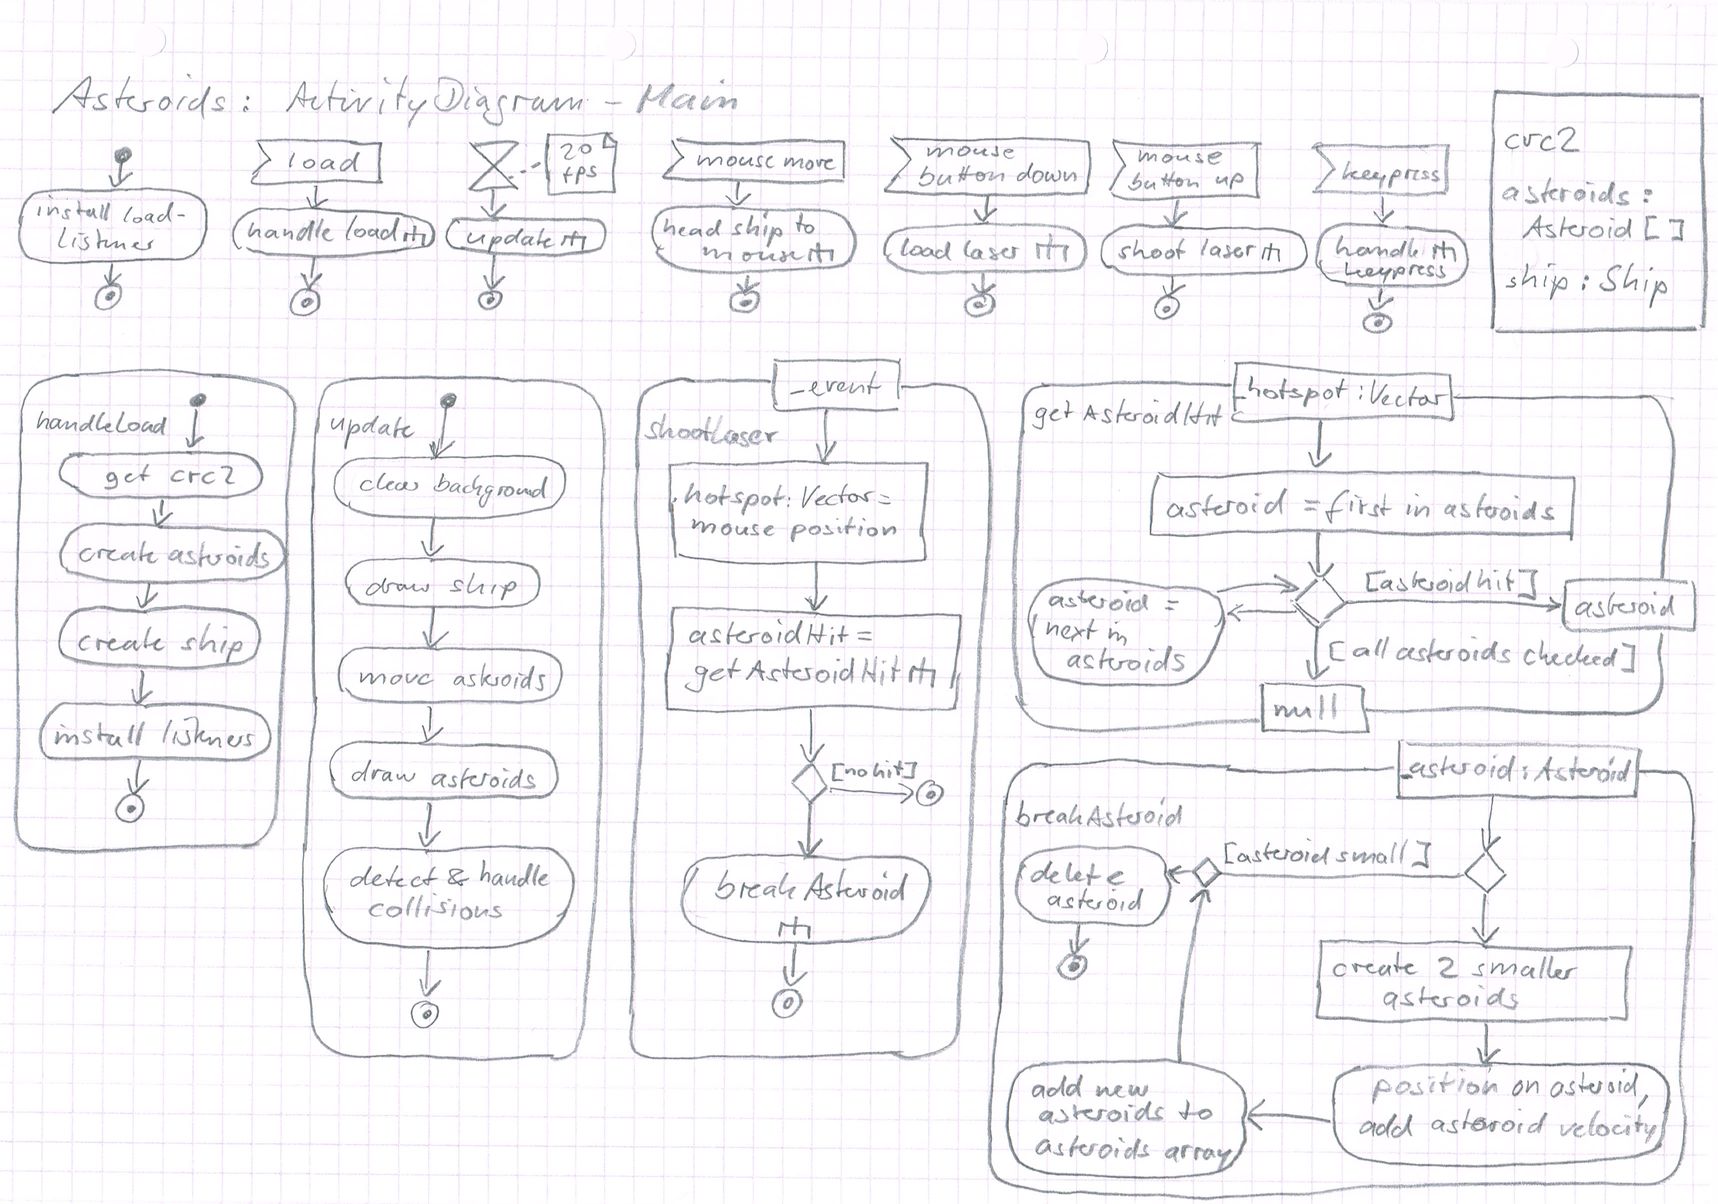 Asteroids: ActivityDiagram - Main
install load-
Listner
load
handle load
20
fps
update
mouse move
head ship to
mouse
mouse
button down
load laser
mouse
button up
shoot laser
keypress
handle
keypress
crc2
asteroids:
Asteroid[]
ship: Ship
handleLoad
get crc2
create asteroids
create ship
install listners
update
clear background
draw ship
move asteroids
draw asteroids
detect & handle
collisions
_event
shootLaser
hotspot: Vector =
mouse position
asteroidHit =
getAsteroidHit
[no hit]
breakAsteroid
_hotspot: Vector
getAsteroidHit
asteroid = first in asteroids
asteroid =
next in
asteroids
[asteroid hit]
asteroid
[all asteroids checked]
null
_asteroid: Asteroid
breakAsteroid
[asteroid small]
delete
asteroid
create 2 smaller
asteroids
position on asteroid,
add asteroid velocity
add new
asteroids to
asteroids array